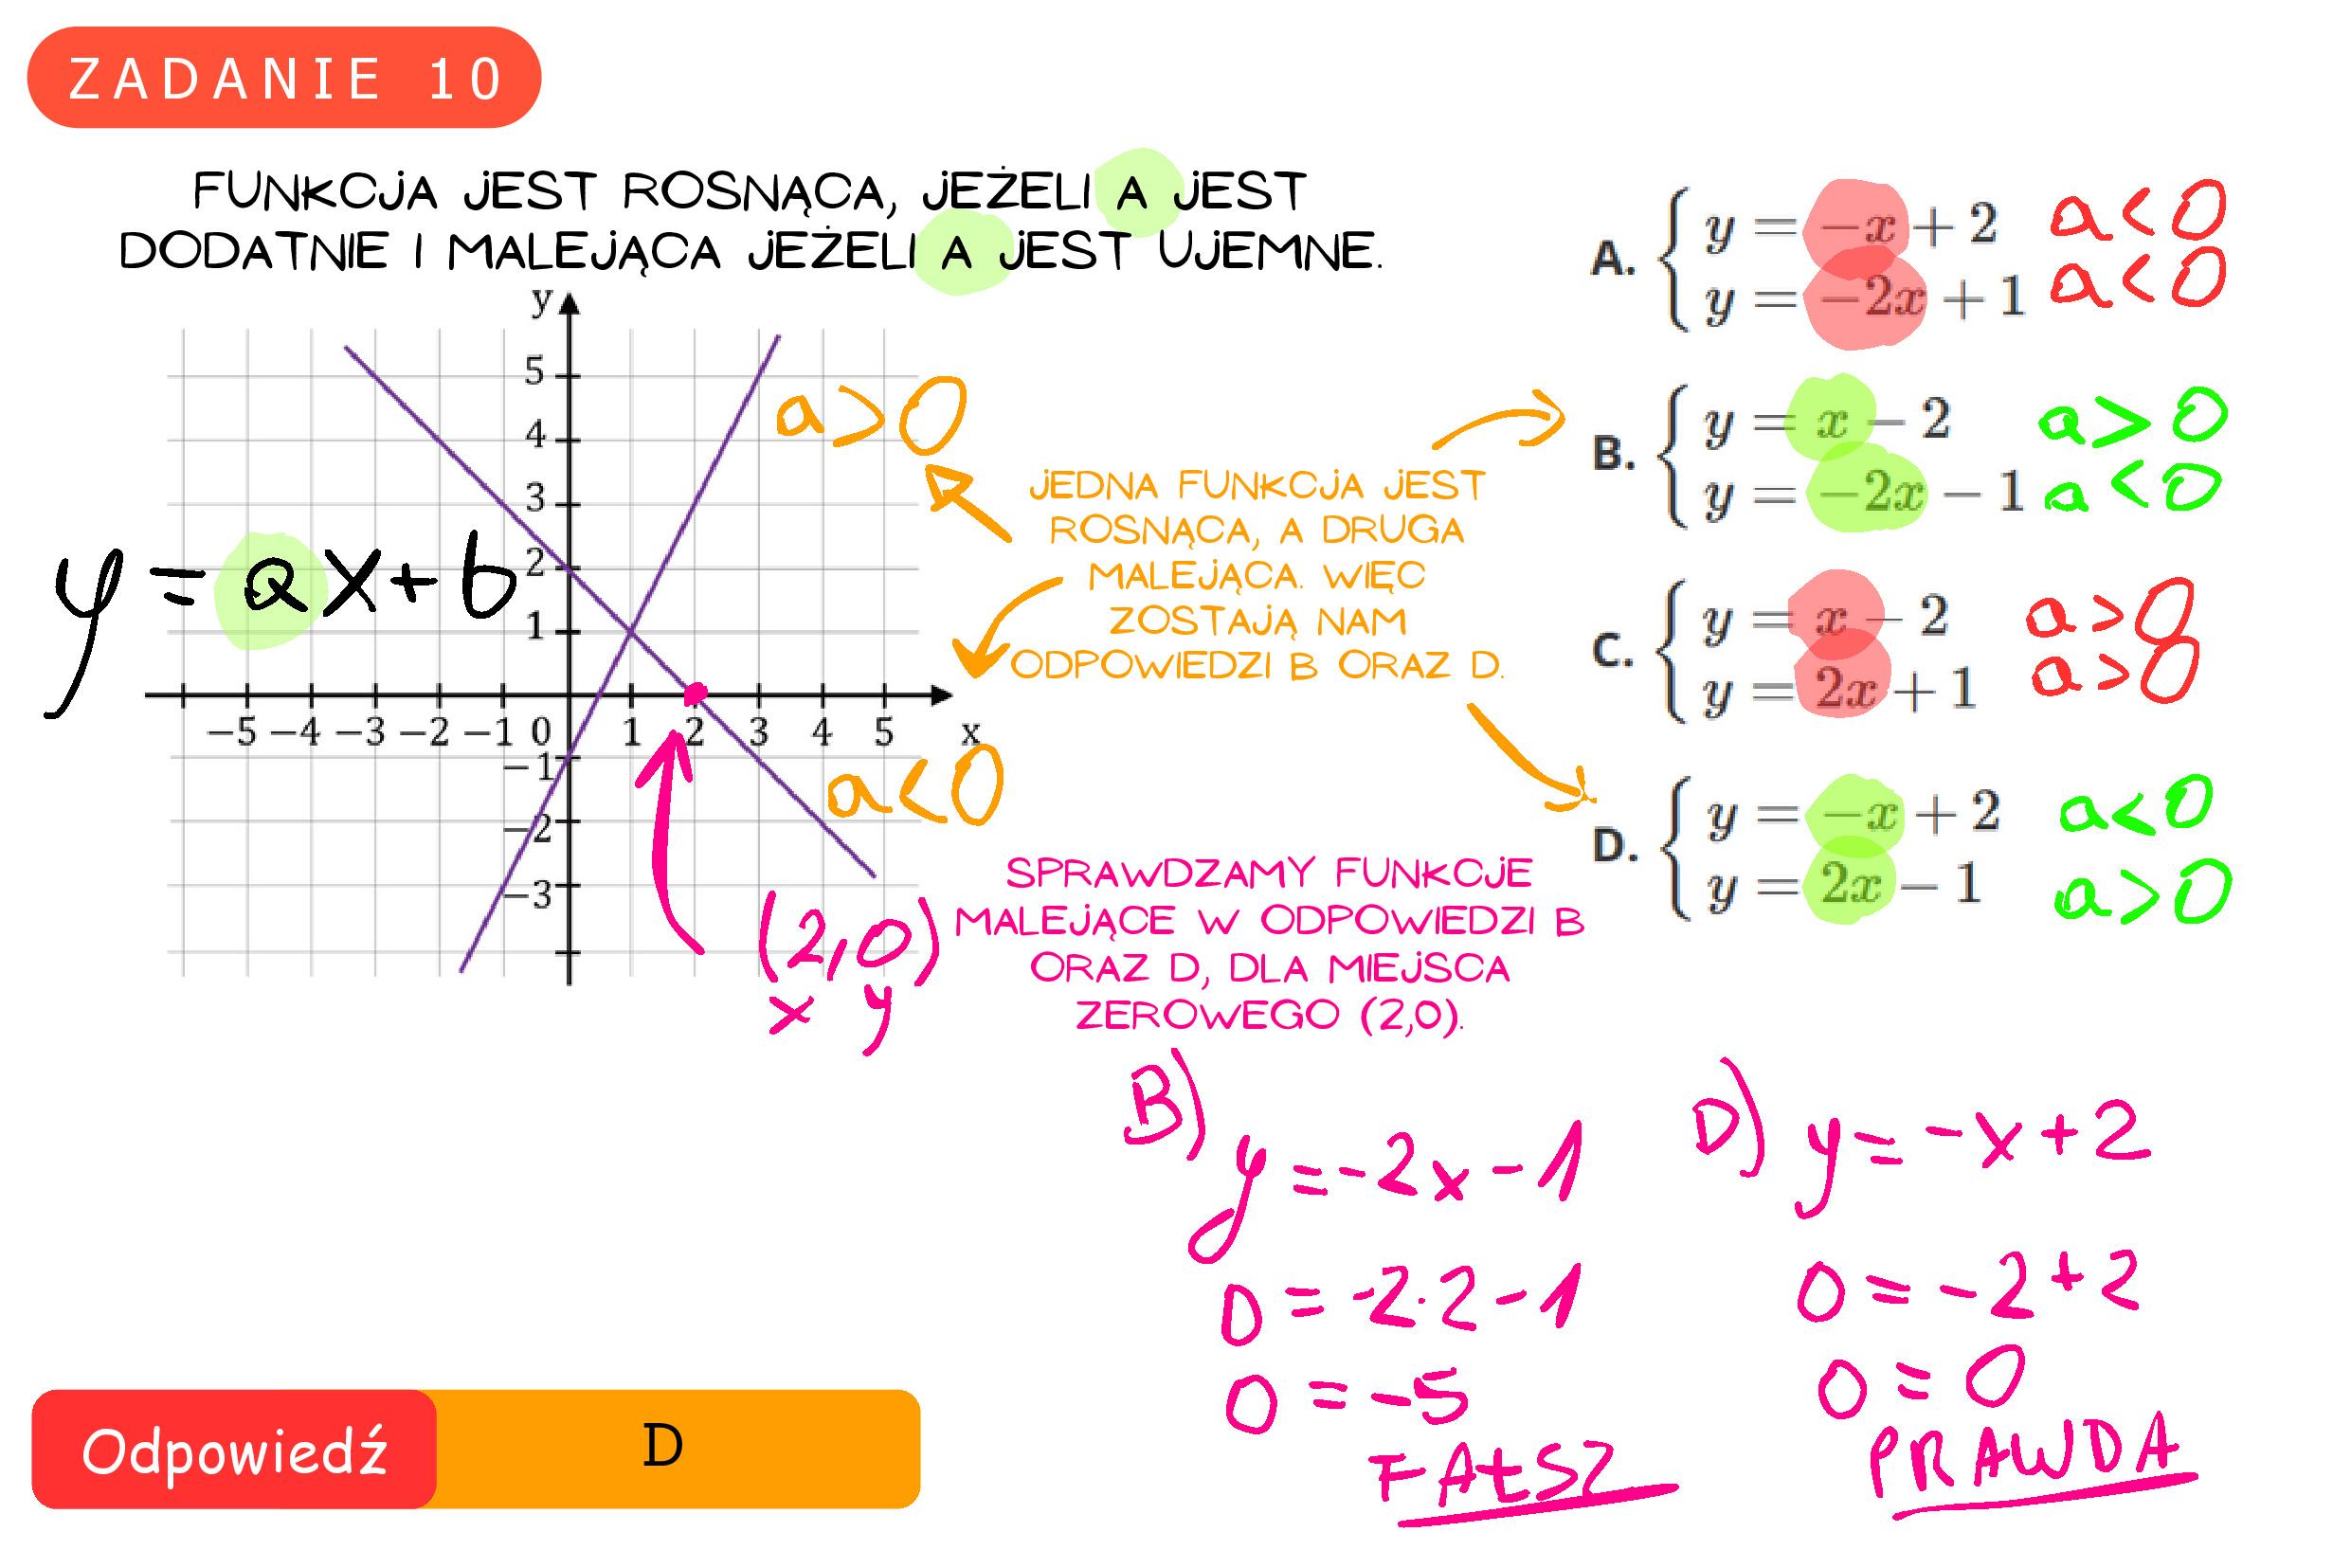 ZADANIE 10
FUNKCJA JEST ROSNĄCA, JEŻELI A JEST
DODATNIE I MALEJĄCA JEŻELI A JEST UJEMNE.
y
5
4
3
2
1
−5 −4 −3 −2 −1 0 1 2 3 4 5 x
−1
−2
−3
y = ax+b
a>0
a<0
JEDNA FUNKCJA JEST
ROSNĄCA, A DRUGA
MALEJĄCA. WIĘC
ZOSTAJĄ NAM
ODPOWIEDZI B ORAZ D.
(2,0)
x y
A. { y = −x + 2 a<0
y = −2x + 1 a<0
B. { y = x − 2 a>0
y = −2x − 1 a<0
C. { y = x − 2 a>0
y = 2x + 1 a>0
D. { y = −x + 2 a<0
y = 2x − 1 a>0
SPRAWDZAMY FUNKCJE
MALEJĄCE W ODPOWIEDZI B
ORAZ D, DLA MIEJSCA
ZEROWEGO (2,0).
B)
y = -2x - 1
0 = -2·2 - 1
0 = -5
FAŁSZ
D) y = -x+2
0 = -2+2
0 = 0
PRAWDA
Odpowiedź D